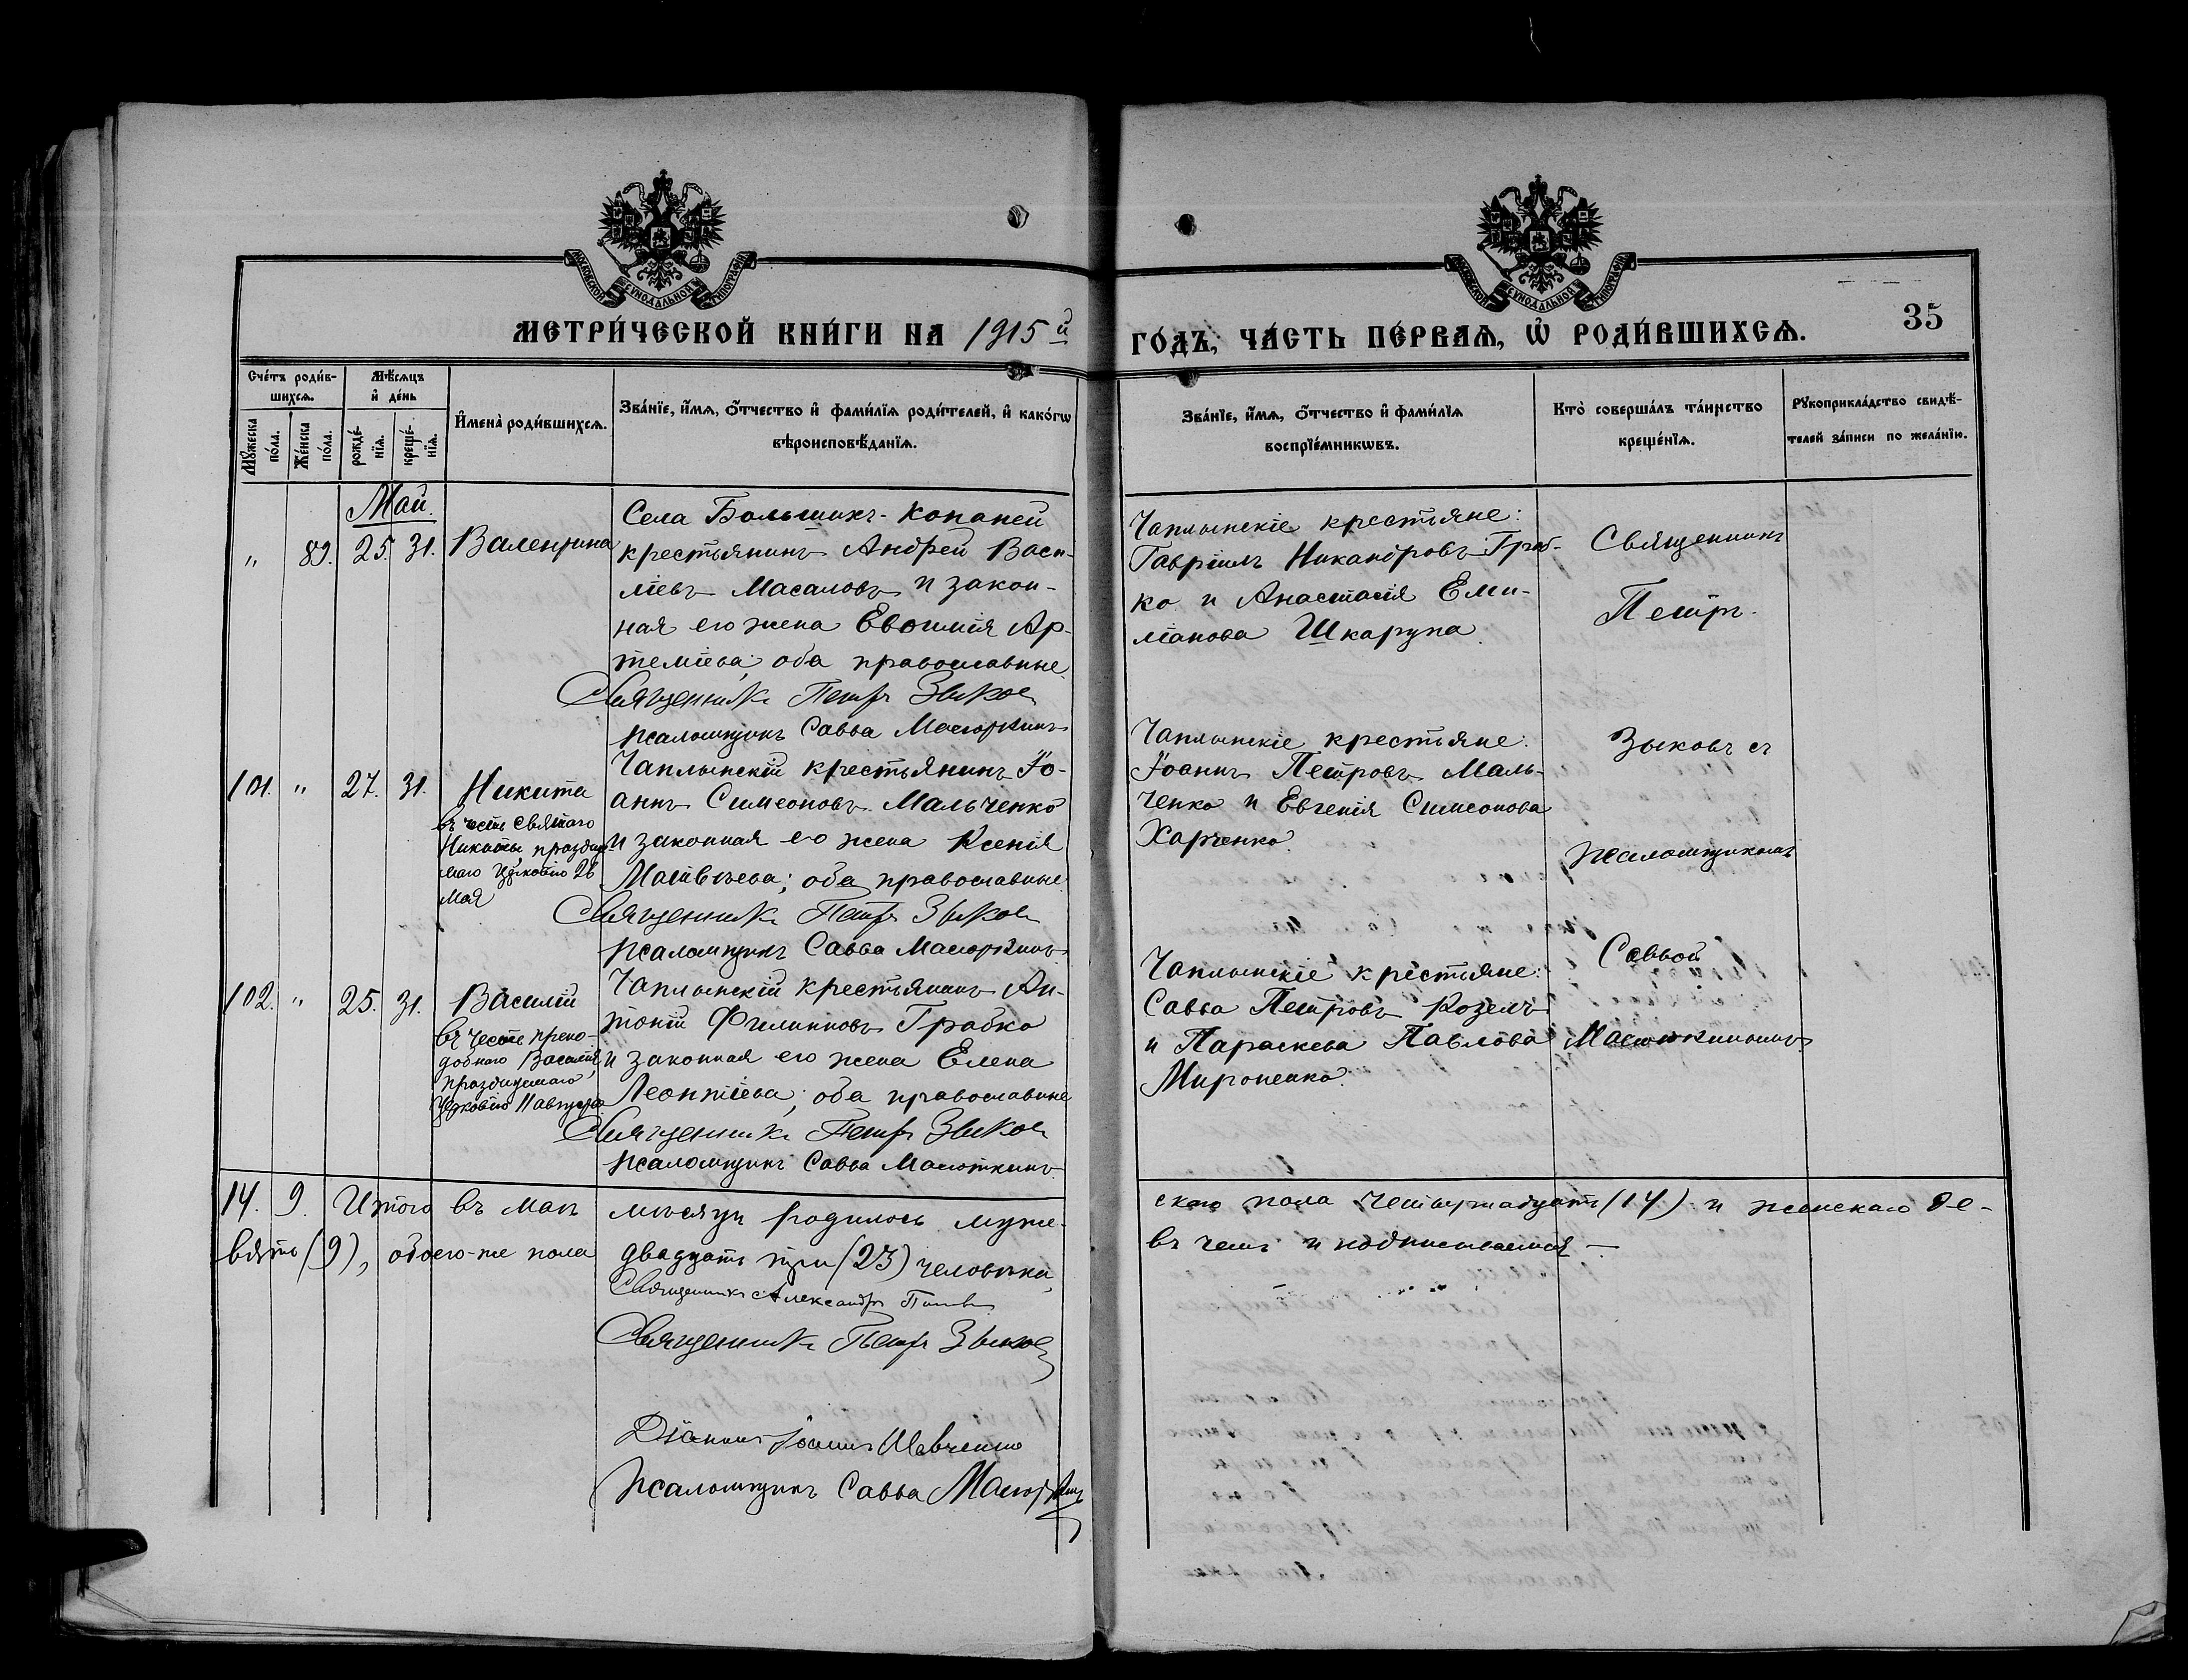 МОСКОВСКОЙ СѴНОДАЛЬНОЙ ТИПОГРАФІИ
МОСКОВСКОЙ СѴНОДАЛЬНОЙ ТИПОГРАФІИ
МЕТРИ́ЧЕСКОЙ КНИ́ГИ НА 1915й
ГО́ДЪ, ЧА́СТЬ ПЕ́РВАѦ, Ѿ РОДИ́ВШИХСѦ.
35
Сче́тъ роди́в-
шихсѧ.
Мѣ́сѧцъ
и҆ де́нь
Мꙋ́жеска по́ла.
Же́нска по́ла.
рожде́-
нїѧ.
креще́-
нїѧ.
И҆мена̀ роди́вшихсѧ.
Зва́нїе, и҆́мѧ, ѻ҆́тчество и҆ фами́лїѧ роди́телей, и҆ како́гѡ
вѣроисповѣ́данїѧ.
Зва́нїе, и҆́мѧ, ѻ҆́тчество и҆ фами́лїѧ
воспрїе́мникѡвъ.
Кто̀ соверша́лъ та́инство
креще́нїѧ.
Рꙋкоприкла́дство свидѣ́-
телей за́писи по жела́нїю.
Май.
" 89. 25. 31. Валентина
Села Большихъ-Копаней
крестьянинъ Андрей Васи-
ліевъ Масаловъ и закон-
ная его жена Евѳимія Ар-
теміева; оба православные
Священникъ Петръ Зыковъ
псаломщикъ Савва Масюткинъ
Чаплынскіе крестьяне:
Гавріилъ Никандровъ Граб-
ко и Анастасія Еми-
ліанова Шкарупа.
Священникъ
Петръ
101. " 27. 31. Никита
въ честь святаго
Никиты, праздну-
маго церковію 28
мая
Чаплынскій крестьянинъ Іо-
аннъ Симеоновъ Мальченко
и законная его жена Ксенія
Матвѣева; оба православные
Священникъ Петръ Зыковъ
псаломщикъ Савва Масюткинъ
Чаплынскіе крестьяне:
Іоаннъ Петровъ Маль-
ченко и Евгенія Симеонова
Харченко.
Зыковъ съ
псаломщикомъ
102. " 25. 31. Василій
въ честь препо-
добнаго Василія,
празднуемаго
церковію 11 августа
Чаплынскій крестьянинъ Ан-
тоній Филипповъ Грабко
и законная его жена Елена
Леонтіева; оба православные
Священникъ Петръ Зыковъ
псаломщикъ Савва Масюткинъ
Чаплынскіе крестьяне:
Савва Петровъ Козелъ
и Параскева Павлова
Мироненко.
Саввой
Масюткинымъ
14. 9. Итого въ маѣ мѣсяцѣ родилось муже-
скаго пола четырнадцать (14) и женскаго де-
вять (9), обоего-же пола двадцать три (23) человѣка,
въ чемъ и подписываемся —
Священникъ Александръ
Священникъ Петръ Зыковъ
Діаконъ Іоаннъ Шевченко
Псаломщикъ Савва Масюткинъ